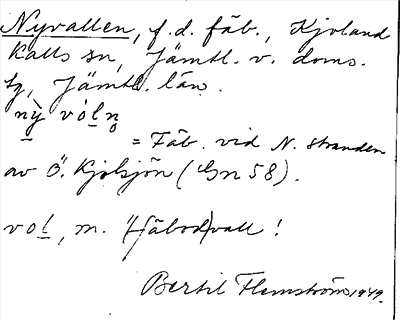 Nyvallen, f.d. fäb., Kjoland
Kalls sn, Jämtl. v. doms.
tg, Jämtl. län.
nỳ vól̲n̥
= Fäb. vid N. stranden
av Ö. Kjolsjön (Gn 58).
vol̲, m. "(fäbod)vall !
Bertil Flemström 1949.